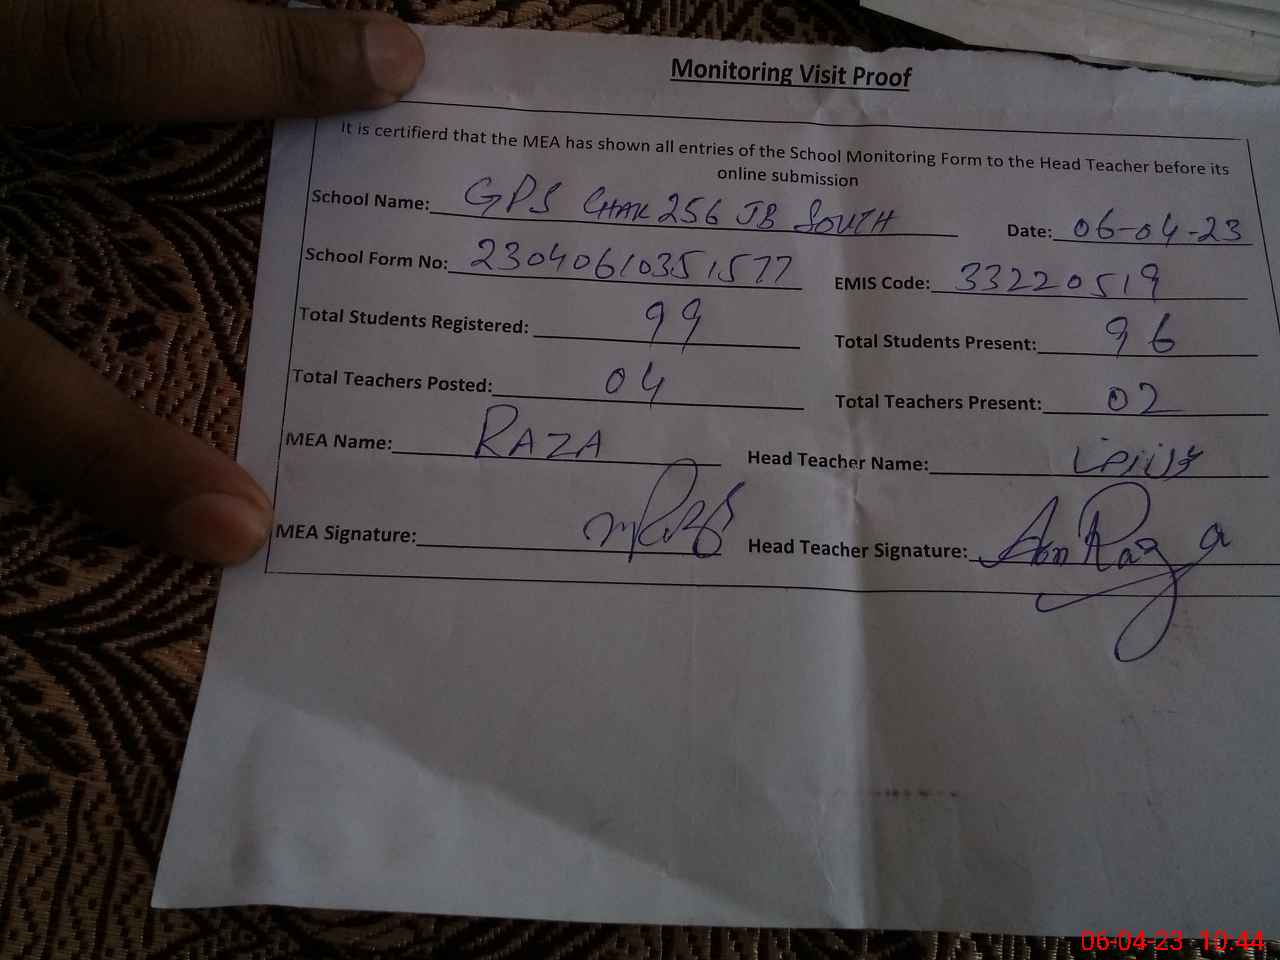 Monitoring Visit Proof
It is certifierd that the MEA has shown all entries of the School Monitoring Form to the Head Teacher before its
online submission
School Name: GPS CHAK 256 JB SOUTH Date: 06-04-23
School Form No: 23040610351577 EMIS Code: 33220519
Total Students Registered: 99 Total Students Present: 96
Total Teachers Posted: 04 Total Teachers Present: 02
MEA Name: RAZA Head Teacher Name:
MEA Signature: Head Teacher Signature:
06-04-23 10:44